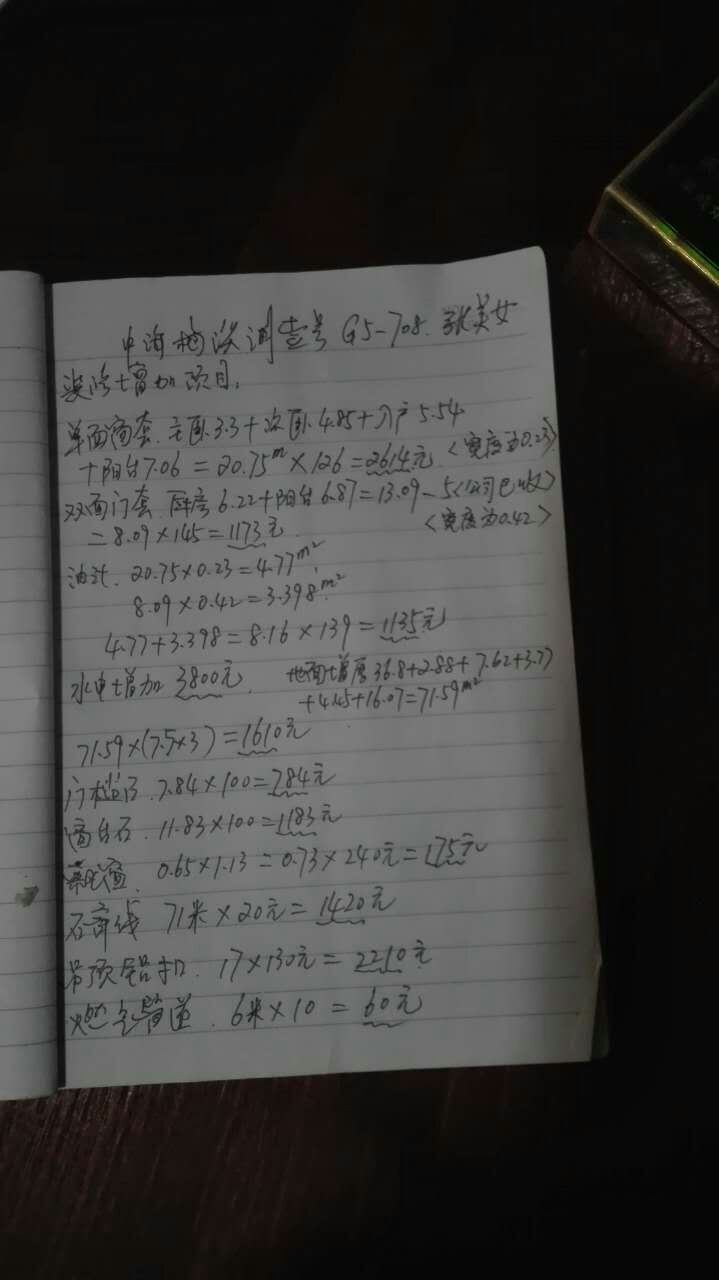 中海 壹号 G5-708. 张美女
装修增加项目,
单面窗套. 主卧.3.3+次卧.4.85+入户5.54
+阳台7.06 = 20.75m×126=2614元. <宽度为0.23>
双面门套. 厨房6.22+阳台6.87=13.09-5<公司已收>
=8.09×145=1173元. <宽度为0.42>
油汁. 20.75×0.23=4.77m²
8.09×0.42=3.398m²
4.77+3.398=8.16×139=1135元
水电增加3800元. 地面增厚36.8+2.88+7.62+3.77
+4.45+16.07=71.59m²
71.59×(7.5×3)=1610元
门槛石.7.84×100=784元
窗台石.11.83×100=1183元
窗. 0.65×1.13=0.73×240元=175元
石膏线 71米×20元=1420元
吊顶铝扣. 17×130元=2210元
燃气管道. 6米×10=60元